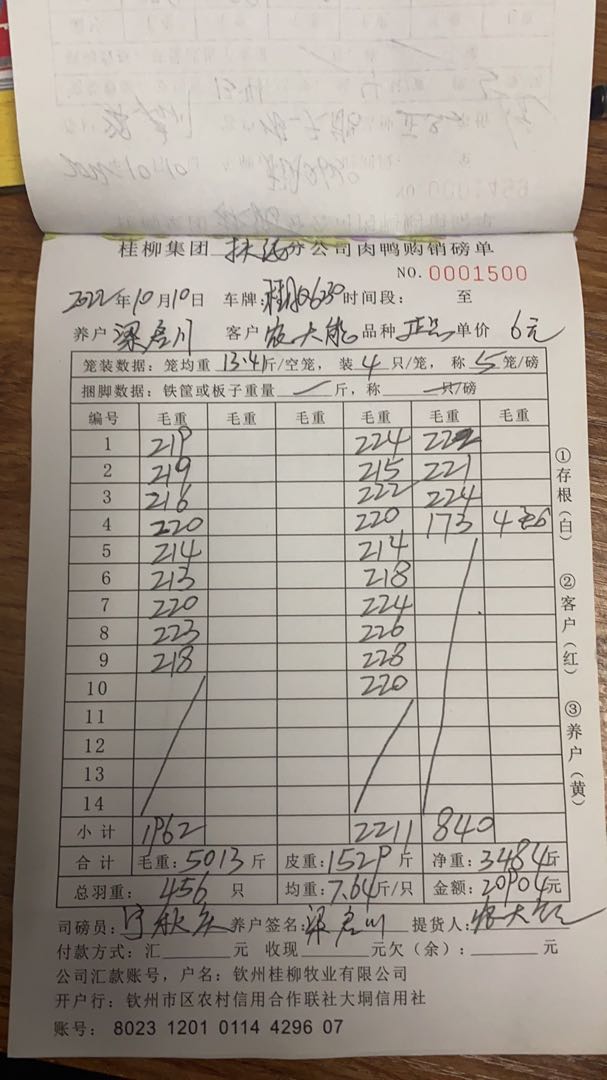 桂柳集团 扶绥 分公司肉鸭购销磅单
NO. 0001500
2022年10月10日 车牌: 时间段: 至
养户 梁启川 客户 农大能 品种 正品 单价 6元
笼装数据: 笼均重 13.4斤/空笼, 装 4 只/笼, 称 5 笼/磅
捆脚数据: 铁筐或板子重量 斤, 称 只/磅
编号 毛重 毛重 毛重 毛重 毛重 毛重
1 219 224 222
2 219 215 221
3 216 222 224
4 220 220 173 4
5 214 214
6 213 218
7 220 224
8 223 226
9 218 228
10 220
11
12
13
14
小计 1962 2211 840
合计 毛重: 5013 斤 皮重: 1529 斤 净重: 3484 斤
总羽重: 456 只 均重: 7.64 斤/只 金额: 20904 元
司磅员: 养户签名: 梁启川 提货人: 农大能
付款方式: 汇 元 收现 元欠(余): 元
公司汇款账号, 户名: 钦州桂柳牧业有限公司
开户行: 钦州市区农村信用合作联社大垌信用社
账号: 8023 1201 0114 4296 07
①存根(白)
②客户(红)
③养户(黄)